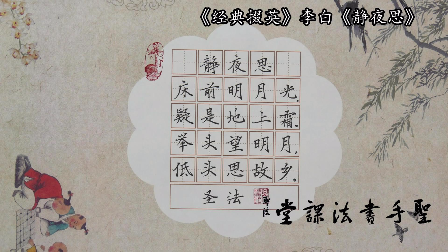 《经典掇英》李白《静夜思》
静夜思
床前明月光，
疑是地上霜。
举头望明月，
低头思故乡。
圣法
堂課法書手聖